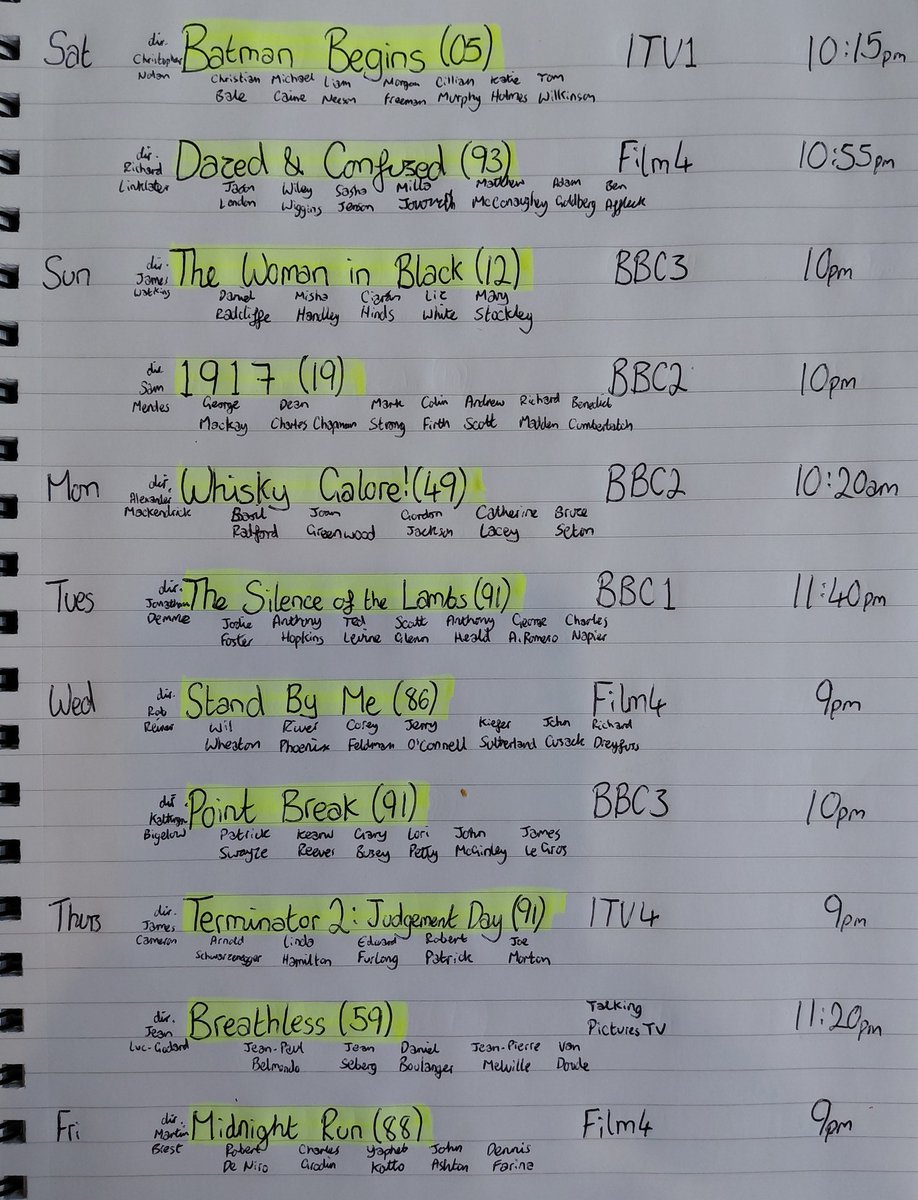 Sat dir. Christopher Nolan Batman Begins (05) ITV1 10:15pm
Christian Michael Liam Morgan Cillian Katie Tom
Bale Caine Neeson Freeman Murphy Holmes Wilkinson
dir. Richard Linklater Dazed & Confused (93) Film4 10:55pm
Jason Wiley Sasha Milla Matthew Adam Ben
London Wiggins Jenson Jovovich McConaughey Goldberg Affleck
Sun dir. James Watkins The Woman in Black (12) BBC3 10pm
Daniel Misha Ciarán Liz Mary
Radcliffe Handley Hinds White Stockley
dir. Sam Mendes 1917 (19) BBC2 10pm
George Dean Mark Colin Andrew Richard Benedict
Mackay Charles Chapman Strong Firth Scott Madden Cumberbatch
Mon dir. Alexander Mackendrick Whisky Galore! (49) BBC2 10:20am
Basil Joan Gordon Catherine Bruce
Radford Greenwood Jackson Lacey Seton
Tues dir. Jonathan Demme The Silence of the Lambs (91) BBC1 11:40pm
Jodie Anthony Ted Scott Anthony George Charles
Foster Hopkins Levine Glenn Heald A. Romero Napier
Wed dir. Rob Reiner Stand By Me (86) Film4 9pm
Wil River Corey Jerry Kiefer John Richard
Wheaton Phoenix Feldman O'Connell Sutherland Cusack Dreyfuss
dir. Kathryn Bigelow Point Break (91) BBC3 10pm
Patrick Keanu Gary Lori John James
Swayze Reeves Busey Petty McGinley Le Gros
Thurs dir. James Cameron Terminator 2: Judgement Day (91) ITV4 9pm
Arnold Linda Edward Robert Joe
Schwarzenegger Hamilton Furlong Patrick Morton
dir. Jean Luc-Godard Breathless (59) Talking Pictures TV 11:20pm
Jean-Paul Jean Daniel Jean-Pierre Van
Belmondo Seberg Boulanger Melville Doude
Fri dir. Martin Brest Midnight Run (88) Film4 9pm
Robert Charles Yaphet John Dennis
De Niro Grodin Kotto Ashton Farina